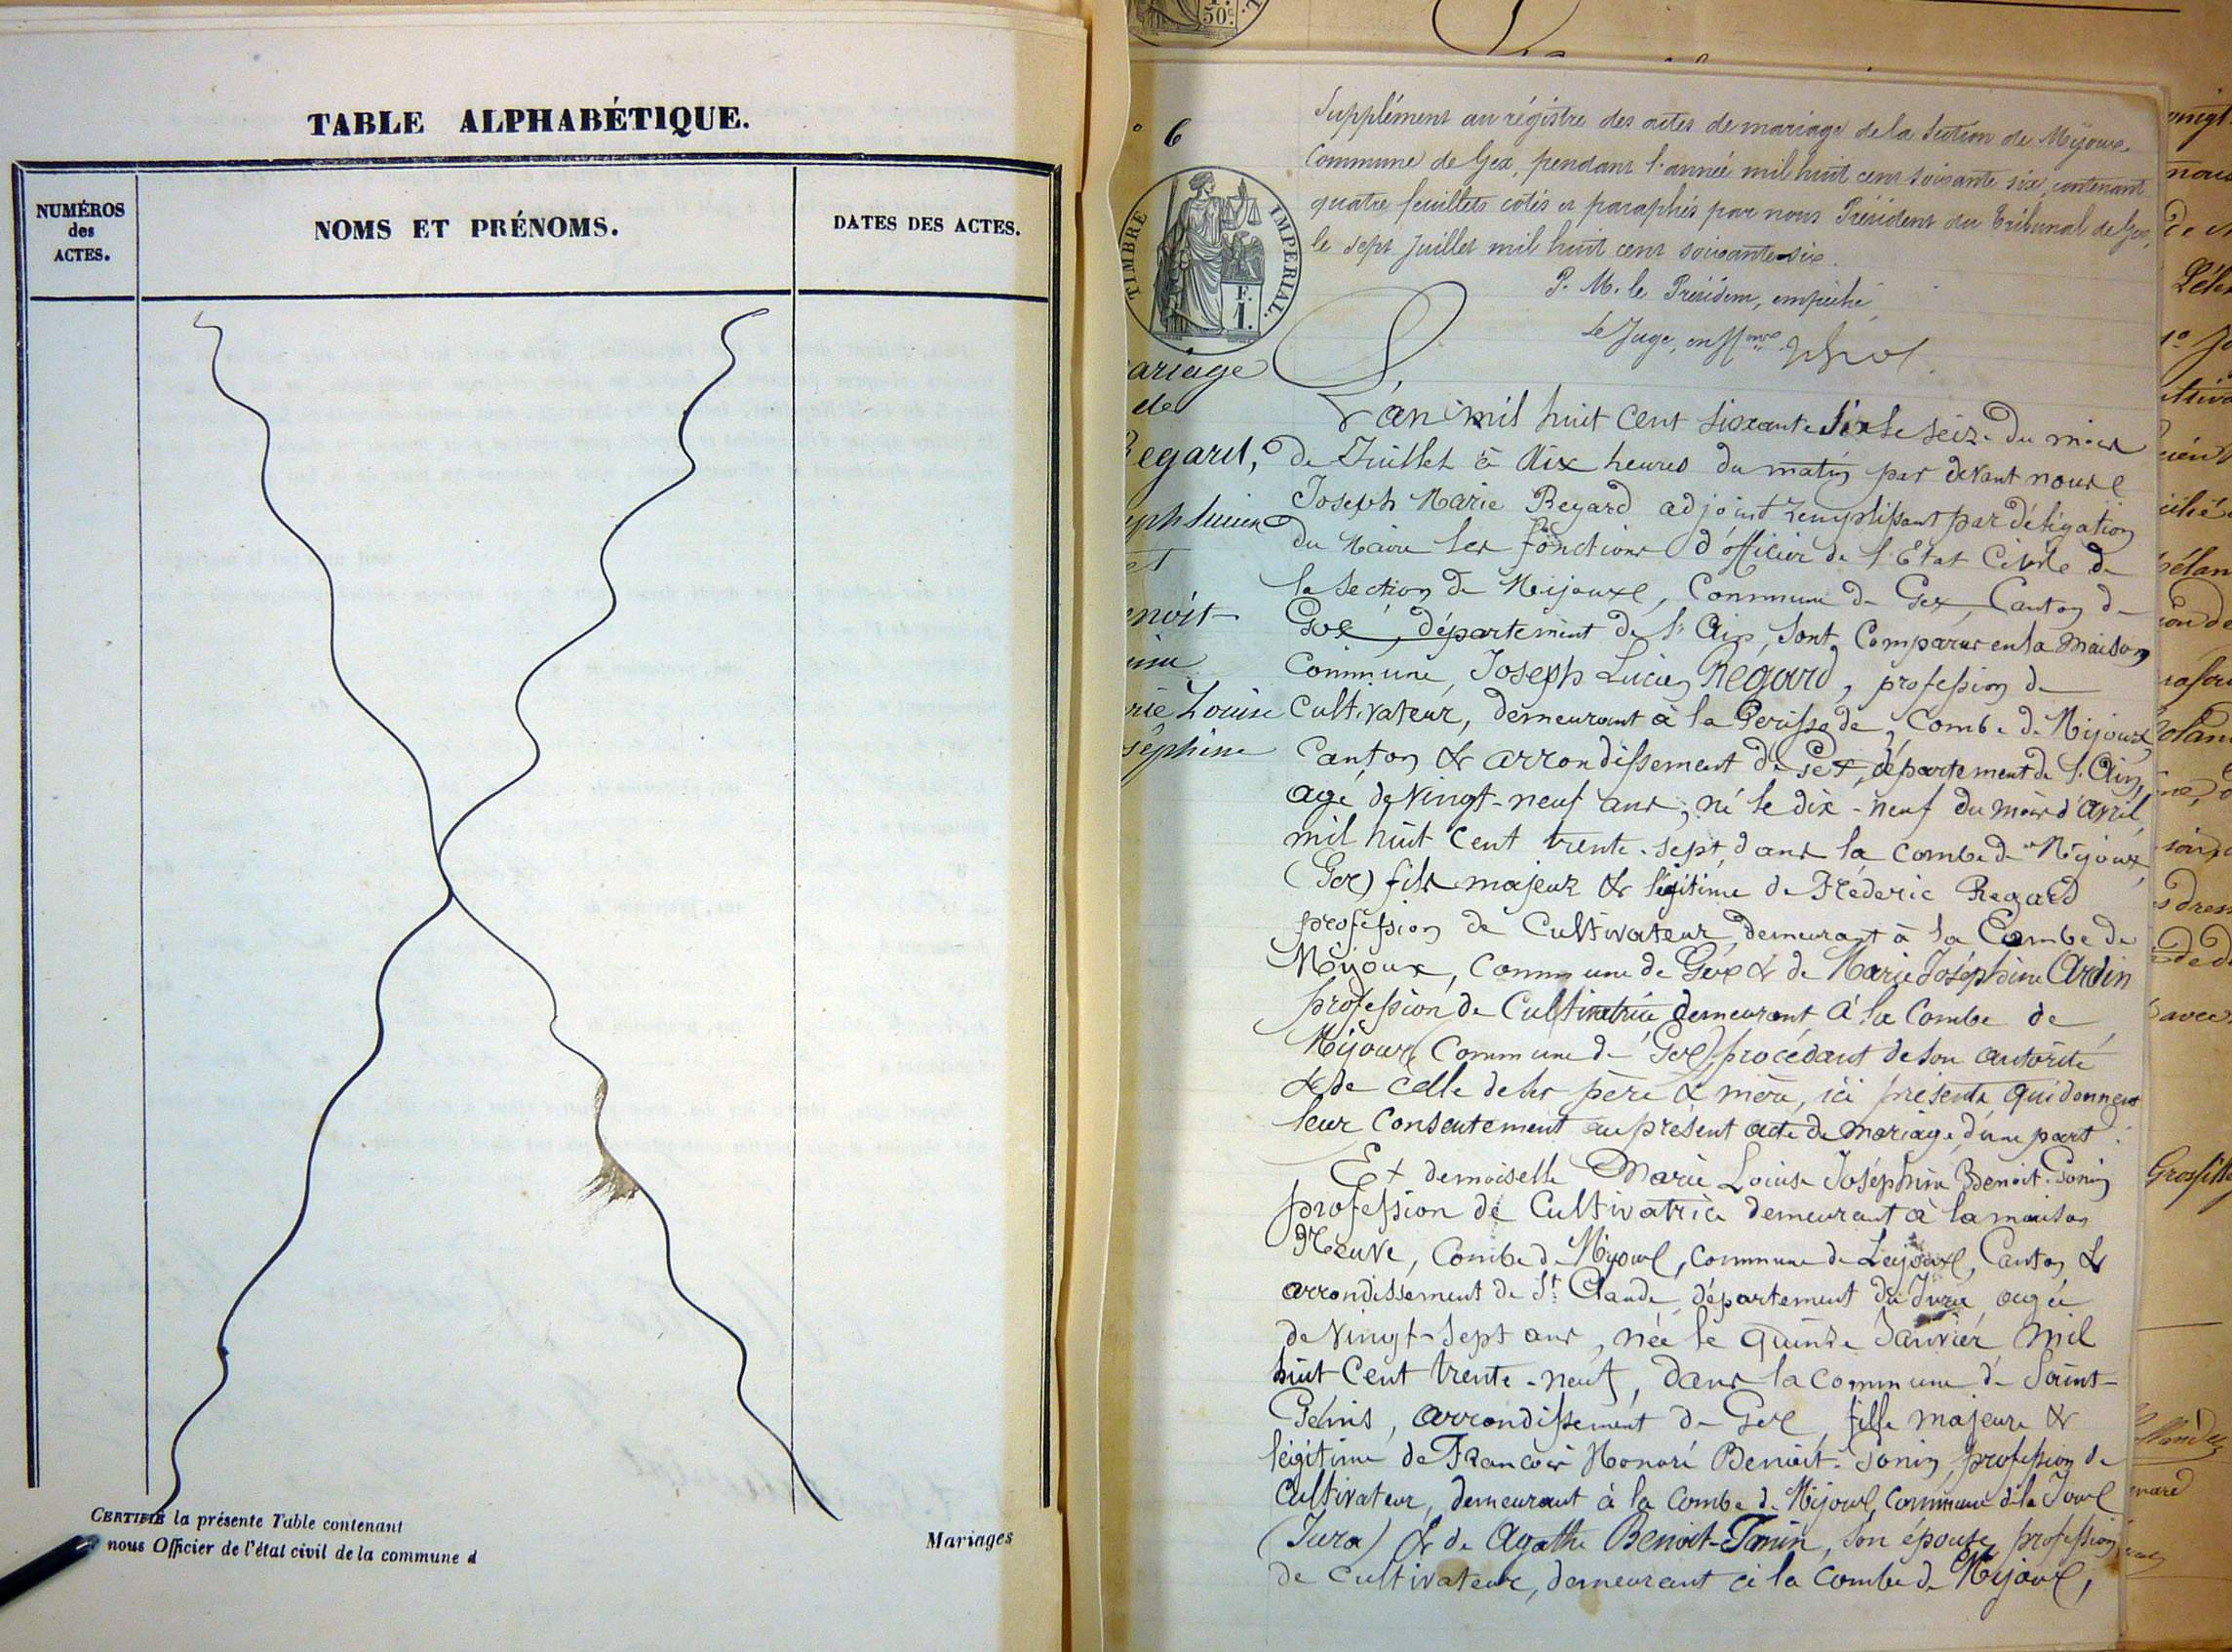 TABLE ALPHABÉTIQUE.
NUMÉROS
des
ACTES.
NOMS ET PRÉNOMS.
DATES DES ACTES.
CERTIFIÉ la présente Table contenant
nous Officier de l'état civil de la commune d
Mariages
50c
6
Supplément au régistre des actes de mariage de la Section de Mijoux,
Commune de Gex, pendant l'année mil huit cent soixante six, contenant
quatre feuillets cotés et paraphés par nous Président du Tribunal de Gex,
le sept Juillet mil huit cent soixante-six.
P. M. le Président, empêché,
le Juge,
TIMBRE IMPERIAL.
F.
1.
ariage
de
Regard,
eph Lucien
et
enoit-
rie Louise
sephine
L'an mil huit cent sixante Six le seize du mois
de Juillet à dix heures du matin par devant nous
Joseph Marie Regard adjoint remplissant par délégation
du Maire les fonctions d'officier de l'Etat Civile de
la section de Mijoux, Commune de Gex, Canton de
Gex, département de l'Ain, sont comparus en la maison
Commune, Joseph Lucien Regard, profession de
Cultivateur, demeurant à la Combe de Mijoux,
Canton & arrondissement de Gex, département de l'Ain,
agé de vingt-neuf ans, né le dix-neuf du mois d'avril,
mil huit cent trente-sept dans la combe de Mijoux,
(Gex) fils majeur & légitime de Fréderic Regard
profession de Cultivateur demeurant à la Combe de
Mijoux, Commune de Gex & de Marie Joséphine Ardin
profession de Cultivatrice demeurant à la Combe de
Mijoux (Commune de Gex) procédant de son autorité
& de celle de ses père & mère, ici présents qui donnent
leur consentement au présent acte de mariage, d'une part.
Et demoiselle Marie Louise Joséphine Benoit-Gonin
profession de Cultivatrice demeurant à la maison
Neuve, Combe de Mijoux, commune de Lajoux, Canton &
arrondissement de St Claude, département du Jura, agée
de vingt-sept ans, née le quinze Janvier mil
huit cent trente-neuf, dans la commune de Saint-
Genis, arrondissement de Gex, fille majeure &
légitime de Francois Honoré Benoit-Gonin, profession de
Cultivateur, demeurant à la Combe de Mijoux, commune de la Joux
(Jura) & de Agathe Benoit-Tonin, son épouse, profession
de cultivateur, demeurant à la combe de Mijoux,